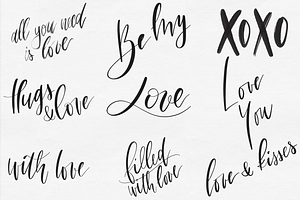 all you need
is love
Be My
XOXO
Hugs
&love
Love
Love
You
with love
filled
with love
love & kisses